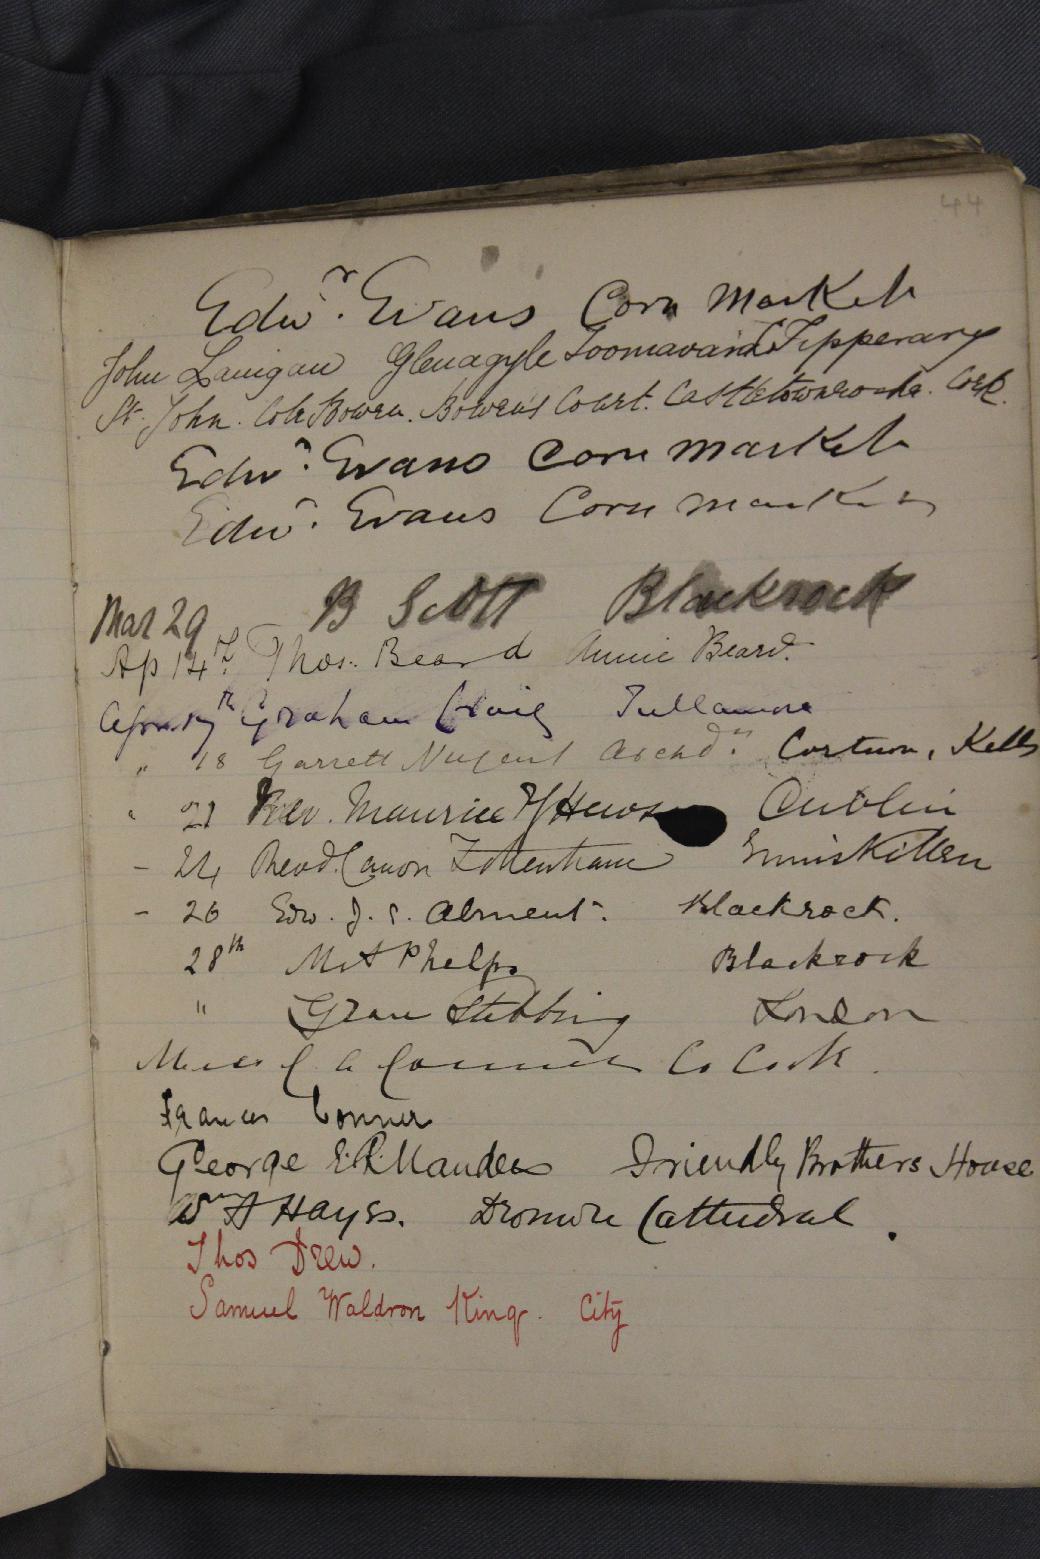 44
Edwr. Evans Corn Market
John Lanigan Glenagyle Toomavara Tipperary
St. John. Cole Bowen. Bowen's Court. Castletownroche. Cork.
Edwr. Evans Corn Market
Edwr. Evans Corn Market
Mar 29 B Scott Blackrock
Ap 14th. Thos. Beard Annie Beard.
Graham Craig Tullamore
" 18 Garrett Nugent Archdn. Kells
" 21 Rev. Maurice Dublin
- 24 Revd. Canon Tottenham Enniskillen
- 26 Edw. J. S. Alment. Blackrock.
28th Phelps Blackrock
" Stebbing London
Miss Co Cork.
Frances Conner
George E.R. Manders Friendly Brothers House
Wm A Hayes. Dromore Cathedral.
Thos Drew.
Samuel Waldron King. City